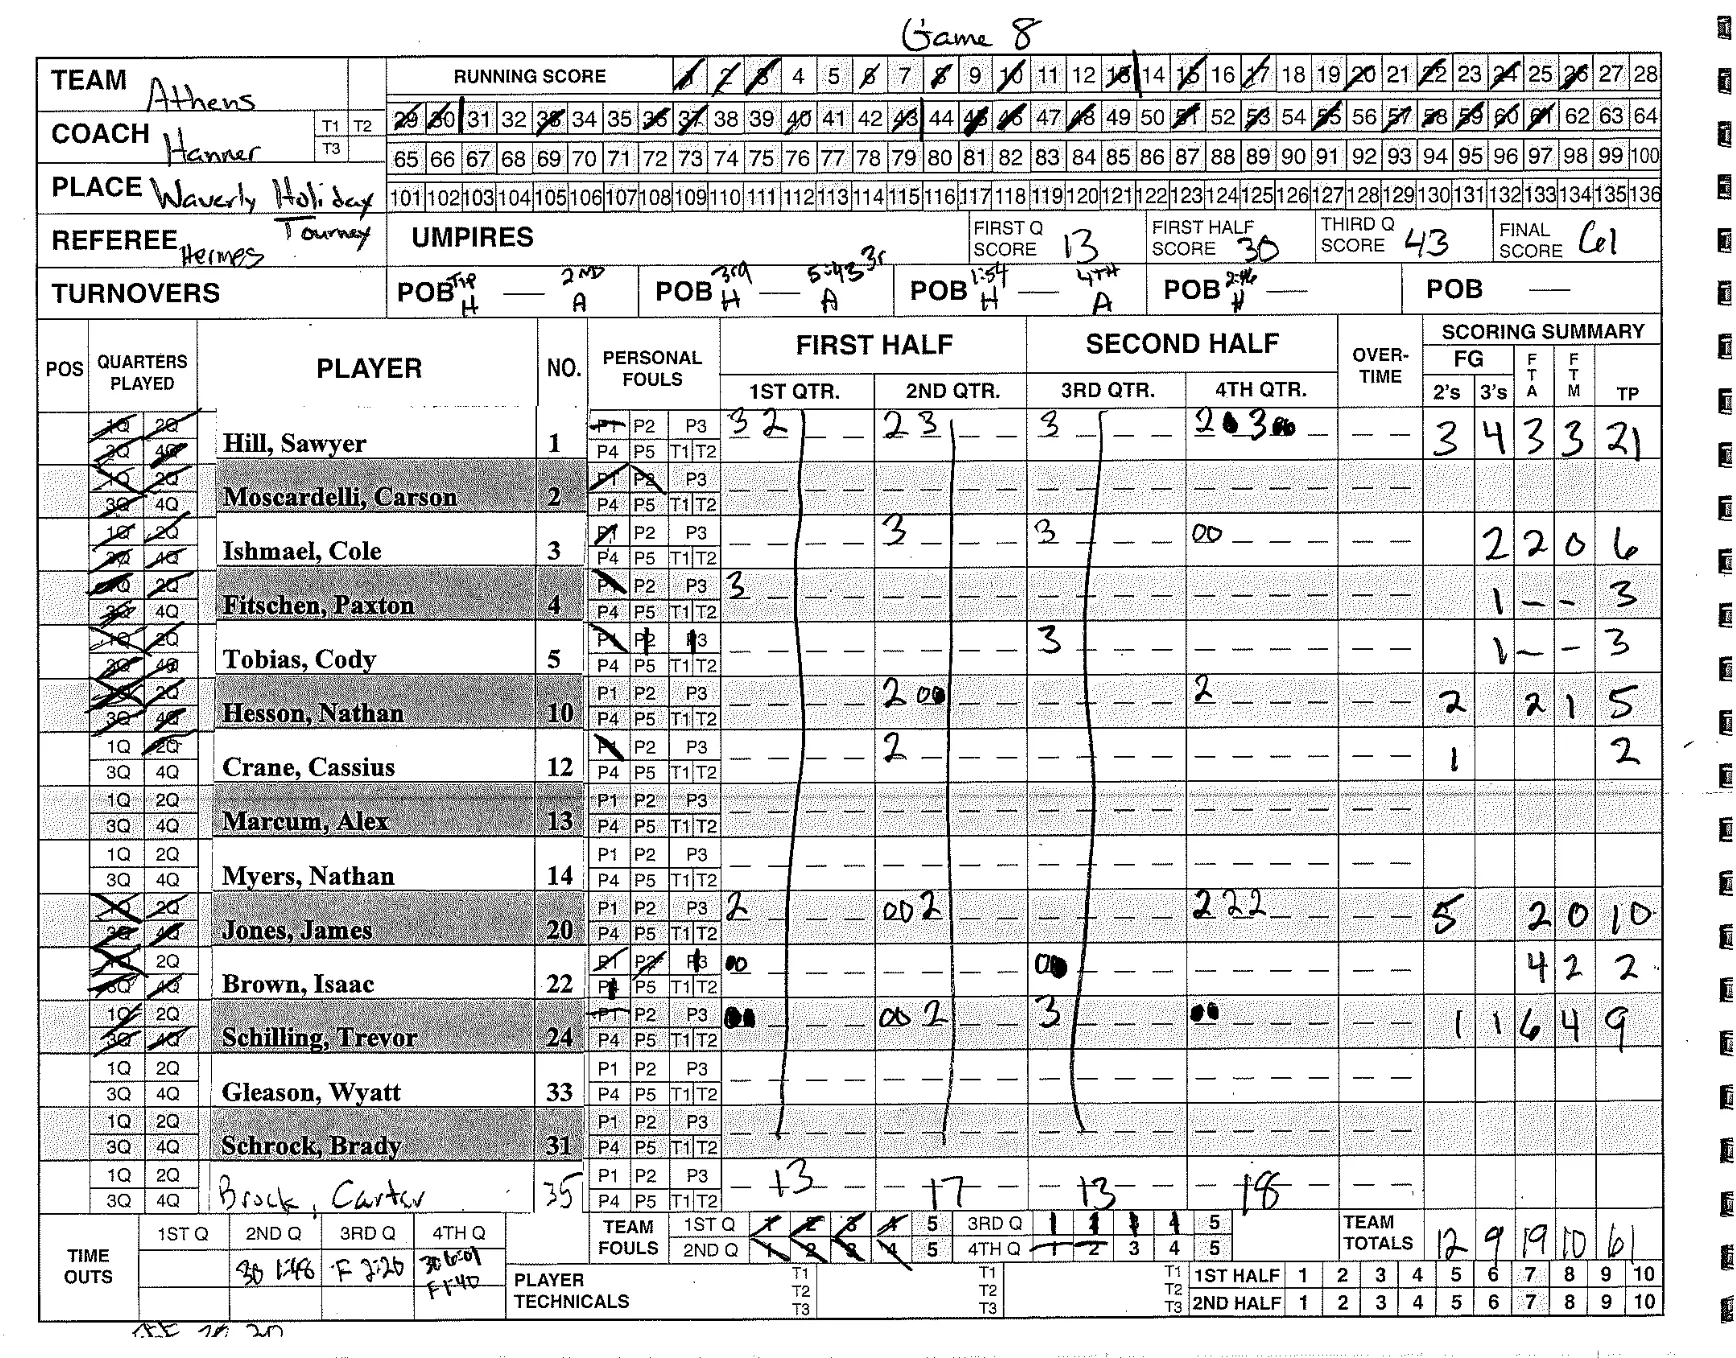 Game 8
TEAM Athens RUNNING SCORE 1 2 3 4 5 6 7 8 9 10 11 12 13 14 15 16 17 18 19 20 21 22 23 24 25 26 27 28
COACH Hanner T1 T2 T3 29 30 31 32 33 34 35 36 37 38 39 40 41 42 43 44 45 46 47 48 49 50 51 52 53 54 55 56 57 58 59 60 61 62 63 64
65 66 67 68 69 70 71 72 73 74 75 76 77 78 79 80 81 82 83 84 85 86 87 88 89 90 91 92 93 94 95 96 97 98 99 100
PLACE Waverly Holiday Tourney 101 102 103 104 105 106 107 108 109 110 111 112 113 114 115 116 117 118 119 120 121 122 123 124 125 126 127 128 129 130 131 132 133 134 135 136
REFEREE Hermes UMPIRES FIRST Q SCORE 13 FIRST HALF SCORE 30 THIRD Q SCORE 43 FINAL SCORE 61
TURNOVERS POB Tip H — 2ND A POB 3rd H — 5:43 3r A POB 1:54 H — 4TH A POB 2:46 H — POB —
POS QUARTERS PLAYED PLAYER NO. PERSONAL FOULS FIRST HALF SECOND HALF OVER-TIME SCORING SUMMARY
1ST QTR. 2ND QTR. 3RD QTR. 4TH QTR. FG 2's 3's FTA FTM TP
1Q 2Q 3Q 4Q Hill, Sawyer 1 P1 P2 P3 P4 P5 T1 T2 3 2 2 3 3 2 3 3 4 3 3 21
1Q 2Q 3Q 4Q Moscardelli, Carson 2 P1 P2 P3 P4 P5 T1 T2
1Q 2Q 3Q 4Q Ishmael, Cole 3 P1 P2 P3 P4 P5 T1 T2 3 3 00 2 2 0 6
1Q 2Q 3Q 4Q Fitschen, Paxton 4 P1 P2 P3 P4 P5 T1 T2 3 1 - - 3
1Q 2Q 3Q 4Q Tobias, Cody 5 P1 P2 P3 P4 P5 T1 T2 3 1 - - 3
1Q 2Q 3Q 4Q Hesson, Nathan 10 P1 P2 P3 P4 P5 T1 T2 2 00 2 2 2 1 5
1Q 2Q 3Q 4Q Crane, Cassius 12 P1 P2 P3 P4 P5 T1 T2 2 1 2
1Q 2Q 3Q 4Q Marcum, Alex 13 P1 P2 P3 P4 P5 T1 T2
1Q 2Q 3Q 4Q Myers, Nathan 14 P1 P2 P3 P4 P5 T1 T2
1Q 2Q 3Q 4Q Jones, James 20 P1 P2 P3 P4 P5 T1 T2 2 00 2 2 2 2 5 2 0 10
1Q 2Q 3Q 4Q Brown, Isaac 22 P1 P2 P3 P4 P5 T1 T2 00 00 4 2 2
1Q 2Q 3Q 4Q Schilling, Trevor 24 P1 P2 P3 P4 P5 T1 T2 00 00 2 3 00 1 1 6 4 9
1Q 2Q 3Q 4Q Gleason, Wyatt 33 P1 P2 P3 P4 P5 T1 T2
1Q 2Q 3Q 4Q Schrock, Brady 31 P1 P2 P3 P4 P5 T1 T2
1Q 2Q 3Q 4Q Brock, Carter 35 P1 P2 P3 P4 P5 T1 T2 13 17 13 18
TIME OUTS 1ST Q 2ND Q 3RD Q 4TH Q TEAM FOULS 1ST Q 1 2 3 4 5 3RD Q 1 2 3 4 5 TEAM TOTALS 12 9 19 10 61
30 1:48 F 2:20 30 6:01 F 1:40 2ND Q 1 2 3 4 5 4TH Q 1 2 3 4 5
PLAYER TECHNICALS T1 T2 T3 T1 T2 T3 T1 T2 T3 1ST HALF 1 2 3 4 5 6 7 8 9 10
2ND HALF 1 2 3 4 5 6 7 8 9 10